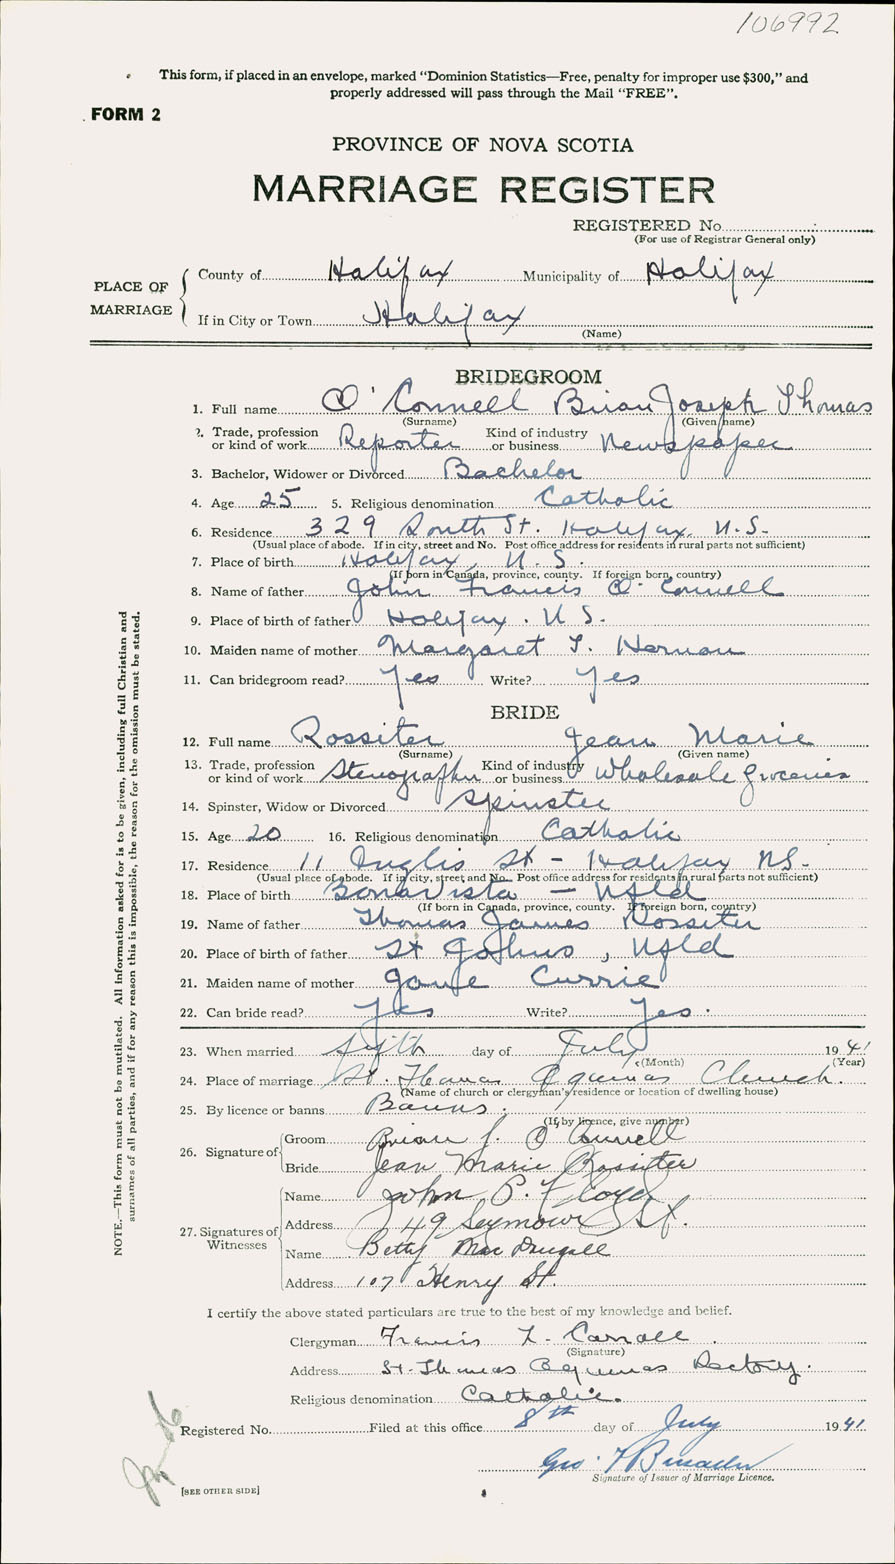 106992
This form, if placed in an envelope, marked "Dominion Statistics—Free, penalty for improper use $300," and
properly addressed will pass through the Mail "FREE".
FORM 2
PROVINCE OF NOVA SCOTIA
MARRIAGE REGISTER
REGISTERED No.
(For use of Registrar General only)
PLACE OF MARRIAGE
County of Halifax Municipality of Halifax
If in City or Town Halifax
(Name)
BRIDEGROOM
1. Full name O'Connell Brian Joseph Thomas
(Surname) (Given name)
2. Trade, profession or kind of work Reporter Kind of industry or business Newspaper
3. Bachelor, Widower or Divorced Bachelor
4. Age 25 5. Religious denomination Catholic
6. Residence 329 South St. Halifax, N.S.
(Usual place of abode. If in city, street and No. Post office address for residents in rural parts not sufficient)
7. Place of birth Halifax, N.S.
(If born in Canada, province, county. If foreign born, country)
8. Name of father John Francis O'Connell
9. Place of birth of father Halifax. N S.
10. Maiden name of mother Margaret T. Hernan
11. Can bridegroom read? Yes Write? Yes
BRIDE
12. Full name Rossiter Jean Marie
(Surname) (Given name)
13. Trade, profession or kind of work Stenographer Kind of industry or business Wholesale Groceries
14. Spinster, Widow or Divorced Spinster
15. Age 20 16. Religious denomination Catholic
17. Residence 11 Inglis St - Halifax NS.
(Usual place of abode. If in city, street and No. Post office address for residents in rural parts not sufficient)
18. Place of birth Bonavista — Nfld
(If born in Canada, province, county. If foreign born, country)
19. Name of father Thomas James Rossiter
20. Place of birth of father St Johns, Nfld
21. Maiden name of mother Jane Currie
22. Can bride read? Yes Write? Yes.
23. When married fifth day of July 1941
(Month) (Year)
24. Place of marriage St. Thomas Aquinas Church.
(Name of church or clergyman's residence or location of dwelling house)
25. By licence or banns Banns.
(If by licence, give number)
26. Signature of Groom Brian J. O'Connell
Bride Jean Marie Rossiter
27. Signatures of Witnesses
Name John P. Floyd
Address 49 Seymour St.
Name Betty MacDougall
Address 107 Henry St.
I certify the above stated particulars are true to the best of my knowledge and belief.
Clergyman Francis L. Carroll
(Signature)
Address St. Thomas Aquinas Rectory.
Religious denomination Catholic.
Registered No. Filed at this office 8th day of July 1941
Geo.
Signature of Issuer of Marriage Licence.
[SEE OTHER SIDE]
NOTE.—This form must not be mutilated. All information asked for is to be given, including full Christian and
surnames of all parties, and if for any reason this is impossible, the reason for the omission must be stated.